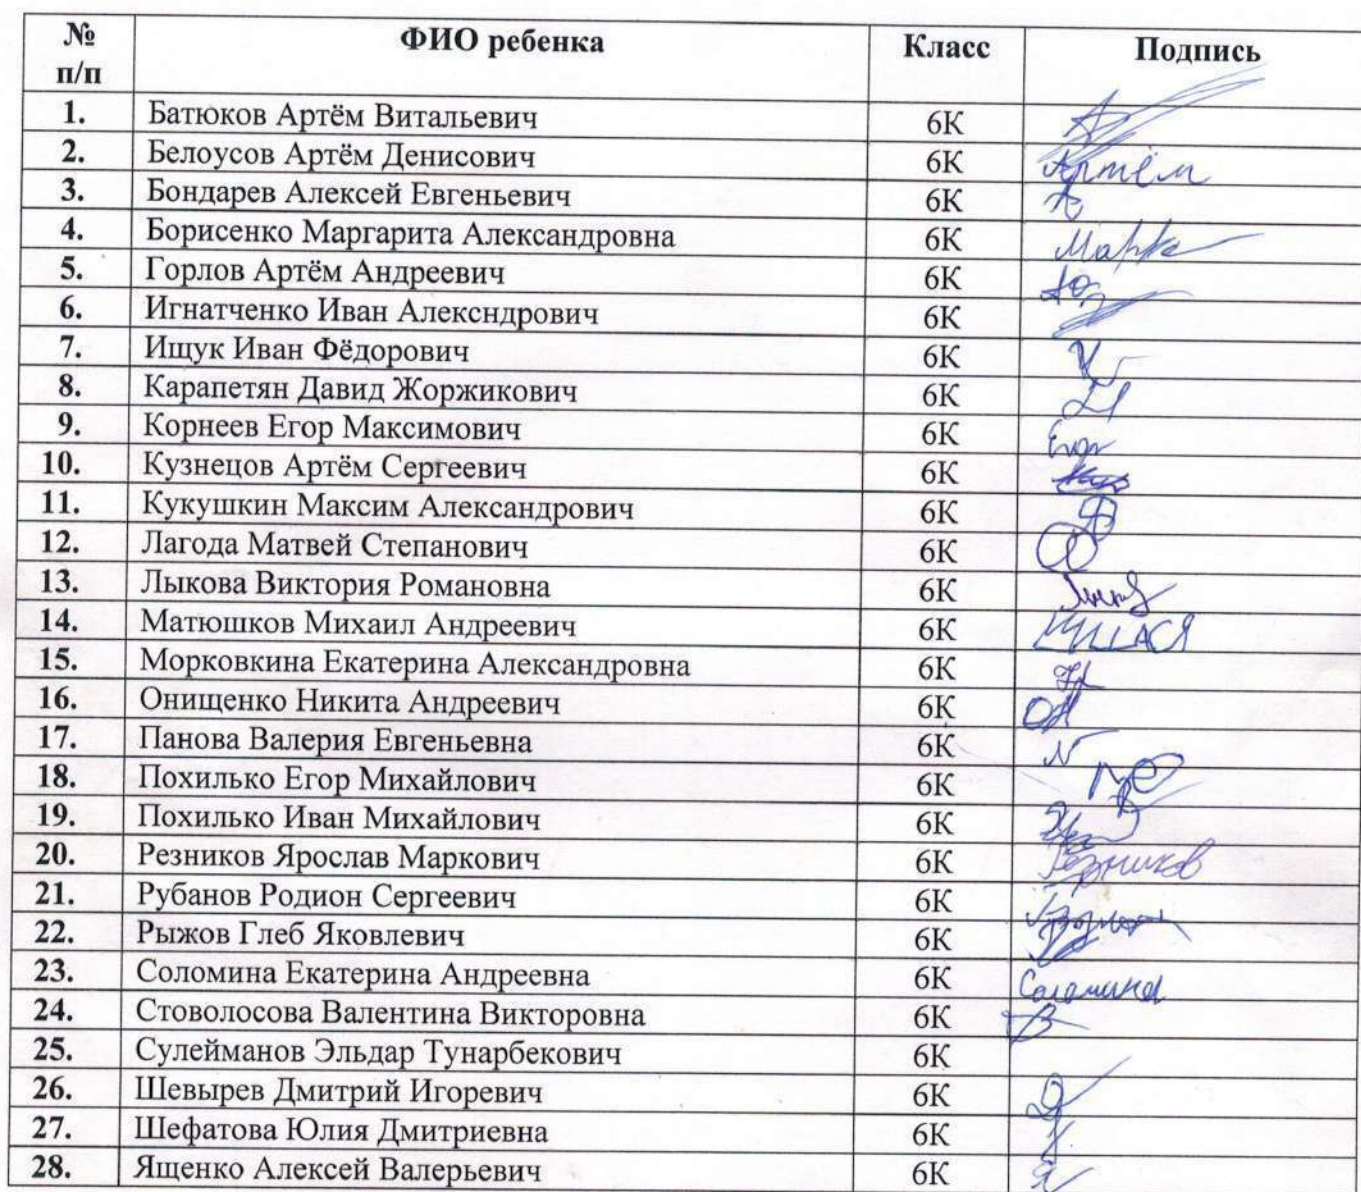 № п/п ФИО ребенка Класс Подпись
1. Батюков Артём Витальевич 6К
2. Белоусов Артём Денисович 6К Артём
3. Бондарев Алексей Евгеньевич 6К
4. Борисенко Маргарита Александровна 6К
5. Горлов Артём Андреевич 6К
6. Игнатченко Иван Алексндрович 6К
7. Ищук Иван Фёдорович 6К
8. Карапетян Давид Жоржикович 6К
9. Корнеев Егор Максимович 6К Егор
10. Кузнецов Артём Сергеевич 6К
11. Кукушкин Максим Александрович 6К
12. Лагода Матвей Степанович 6К
13. Лыкова Виктория Романовна 6К
14. Матюшков Михаил Андреевич 6К
15. Морковкина Екатерина Александровна 6К
16. Онищенко Никита Андреевич 6К
17. Панова Валерия Евгеньевна 6К
18. Похилько Егор Михайлович 6К
19. Похилько Иван Михайлович 6К
20. Резников Ярослав Маркович 6К Резников
21. Рубанов Родион Сергеевич 6К
22. Рыжов Глеб Яковлевич 6К
23. Соломина Екатерина Андреевна 6К Соломина
24. Стоволосова Валентина Викторовна 6К
25. Сулейманов Эльдар Тунарбекович 6К
26. Шевырев Дмитрий Игоревич 6К
27. Шефатова Юлия Дмитриевна 6К
28. Ященко Алексей Валерьевич 6К